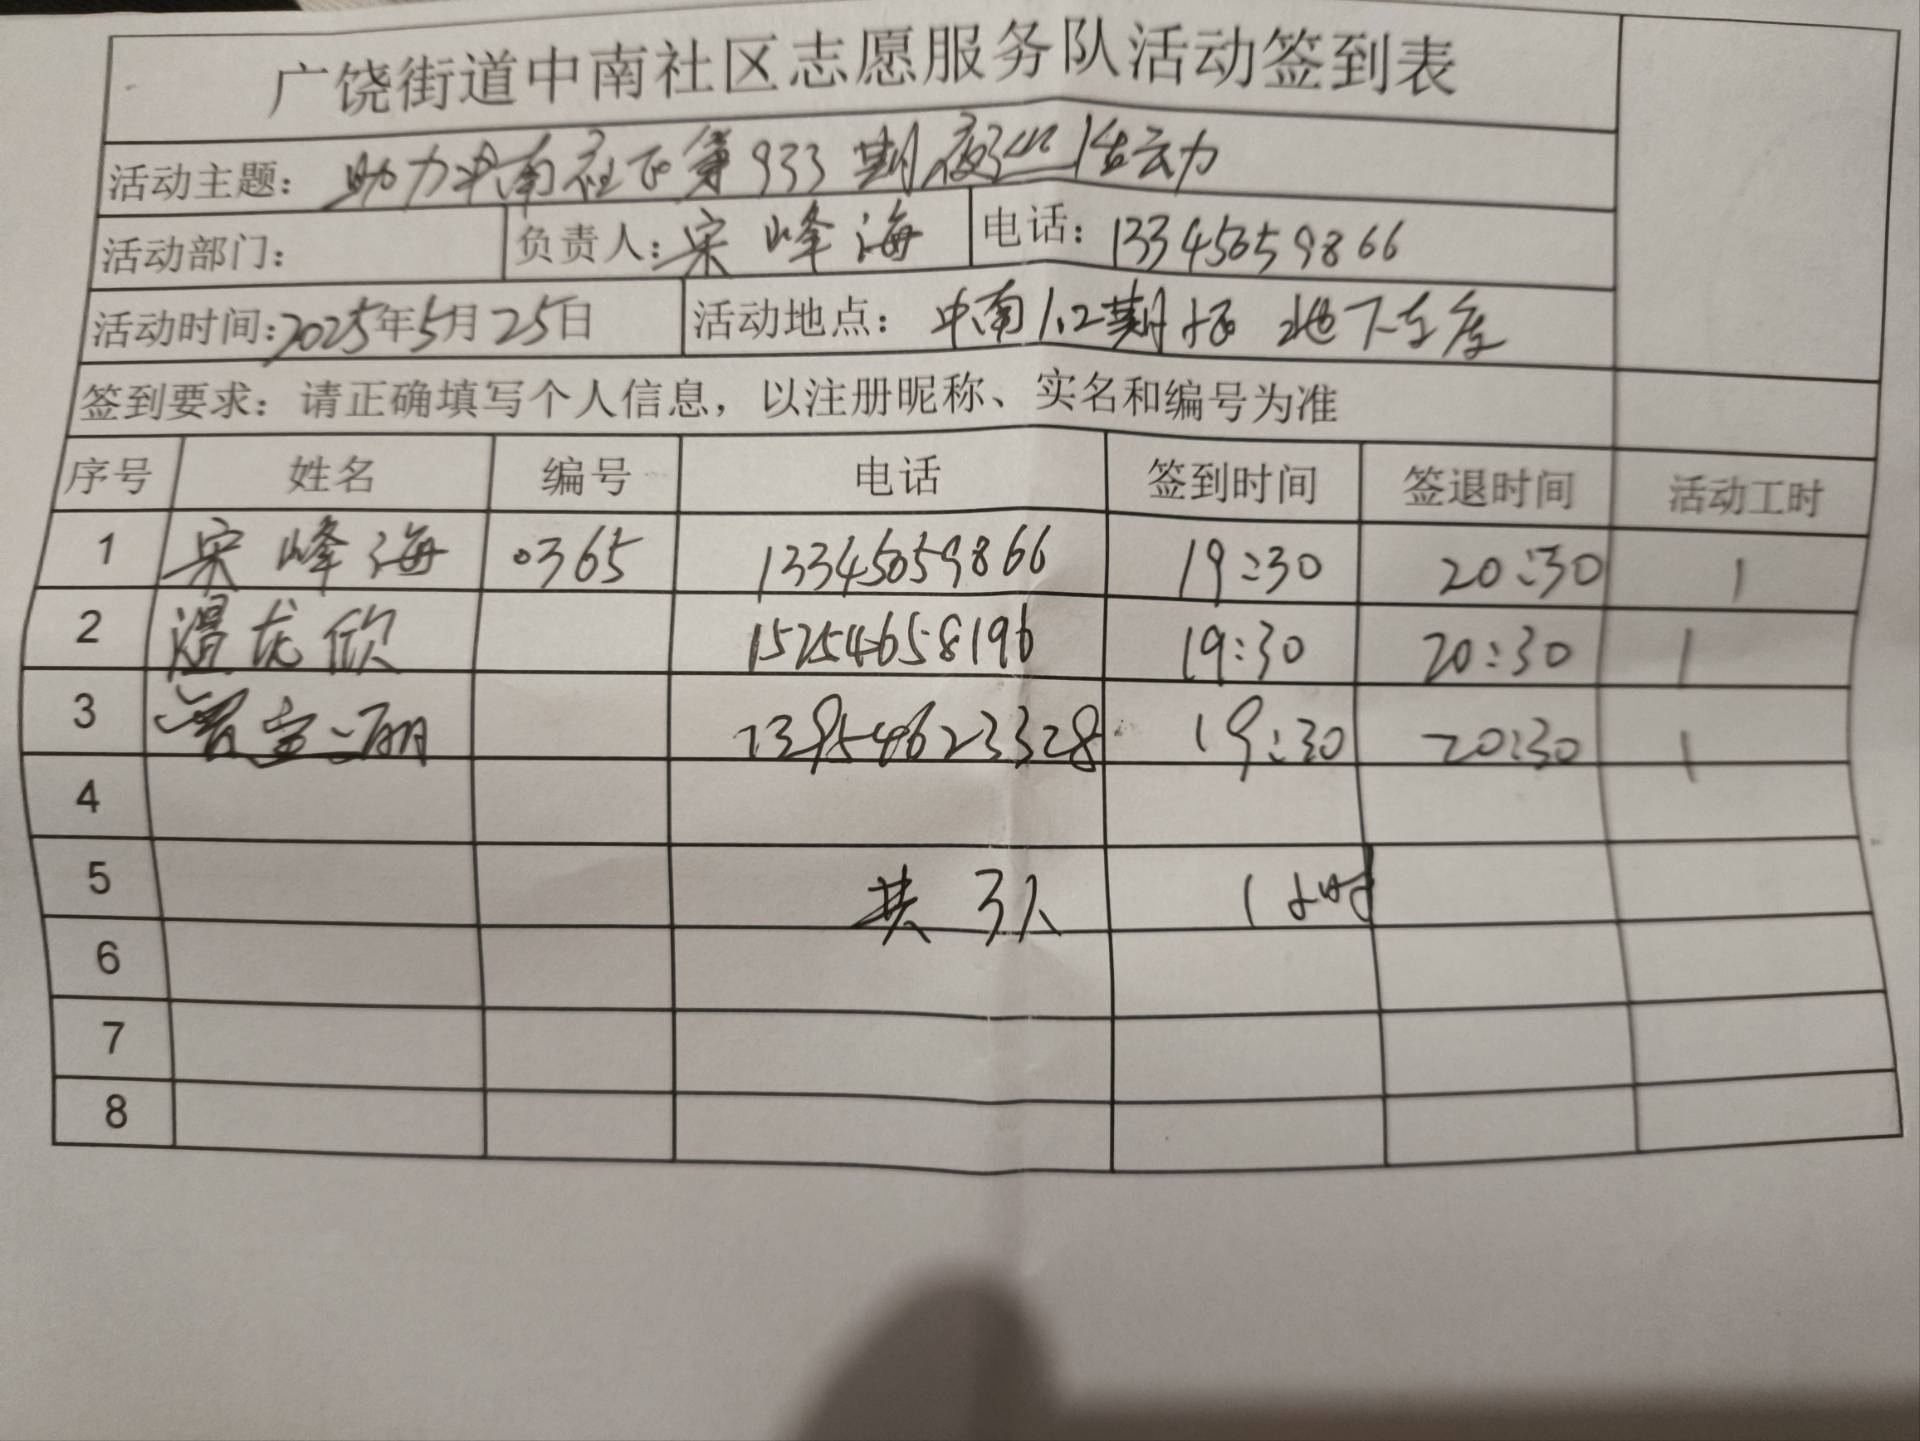 广饶街道中南社区志愿服务队活动签到表
活动主题： 助力中南社区第933期夜巡活动
活动部门： 负责人：宋峰海 电话：13345059866
活动时间：2025年5月25日 活动地点：中南1.2期 地下车库
签到要求：请正确填写个人信息，以注册昵称、实名和编号为准
序号 姓名 编号 电话 签到时间 签退时间 活动工时
1 宋峰海 0365 13345059866 19:30 20:30 1
2 温龙欣 15254658196 19:30 20:30 1
3 13954623328 19:30 20:30 1
4
5 共3人 1小时
6
7
8